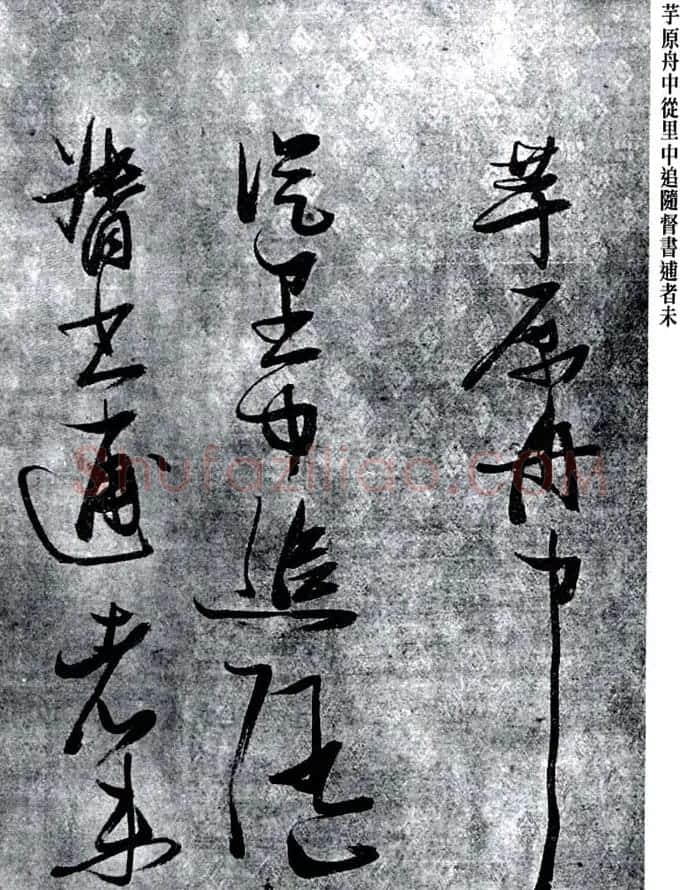 芋原舟中從里中追隨督書逋者未
芋原舟中
從里中追隨
督書逋者未
Shufaziliao.COM